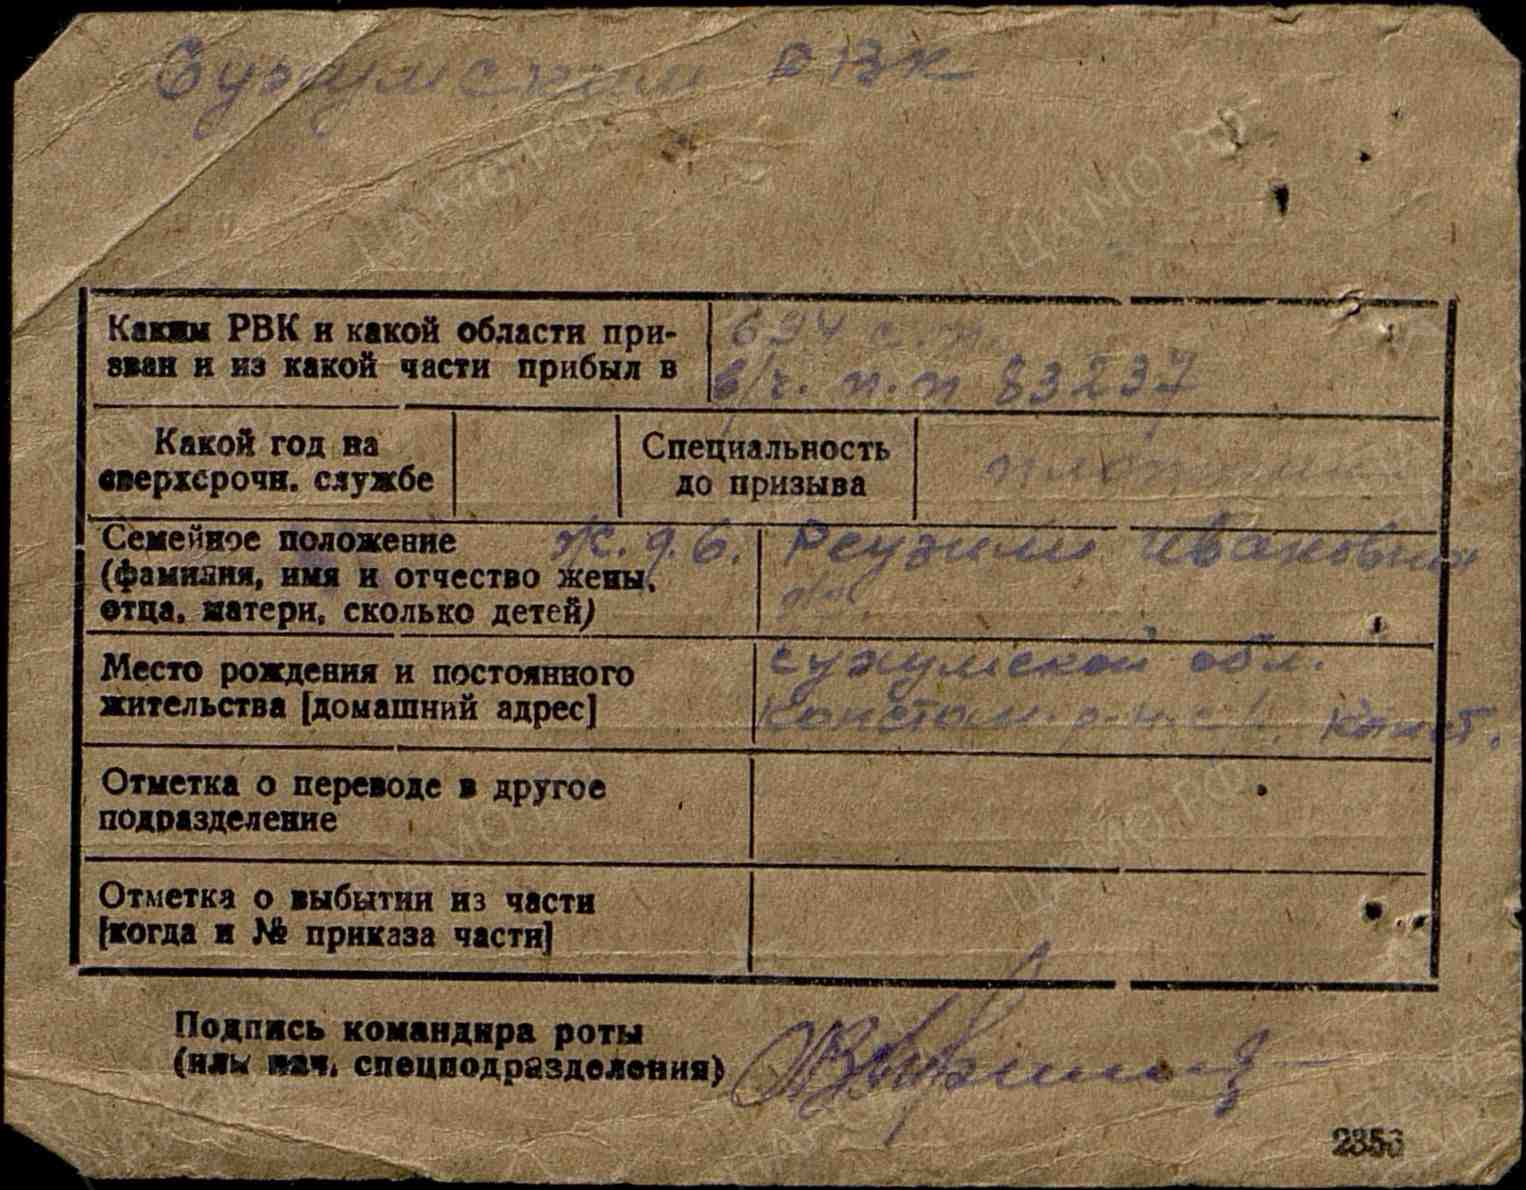 Сухумским РВК
Каким РВК и какой области при-
зван и из какой части прибыл в
694 с.п.
в/ч. п.п 83237
Какой год на
сверхсрочн. службе
Специальность
до призыва
плотник
Семейное положение
(фамилия, имя и отчество жены,
отца, матери, сколько детей)
ж. д. 6. Ивановна
Место рождения и постоянного
жительства [домашний адрес]
Сухумской обл.
Отметка о переводе в другое
подразделение
Отметка о выбытии из части
[когда и № приказа части]
Подпись командира роты
(или нач. спецподразделения)
ЦАМО РФ